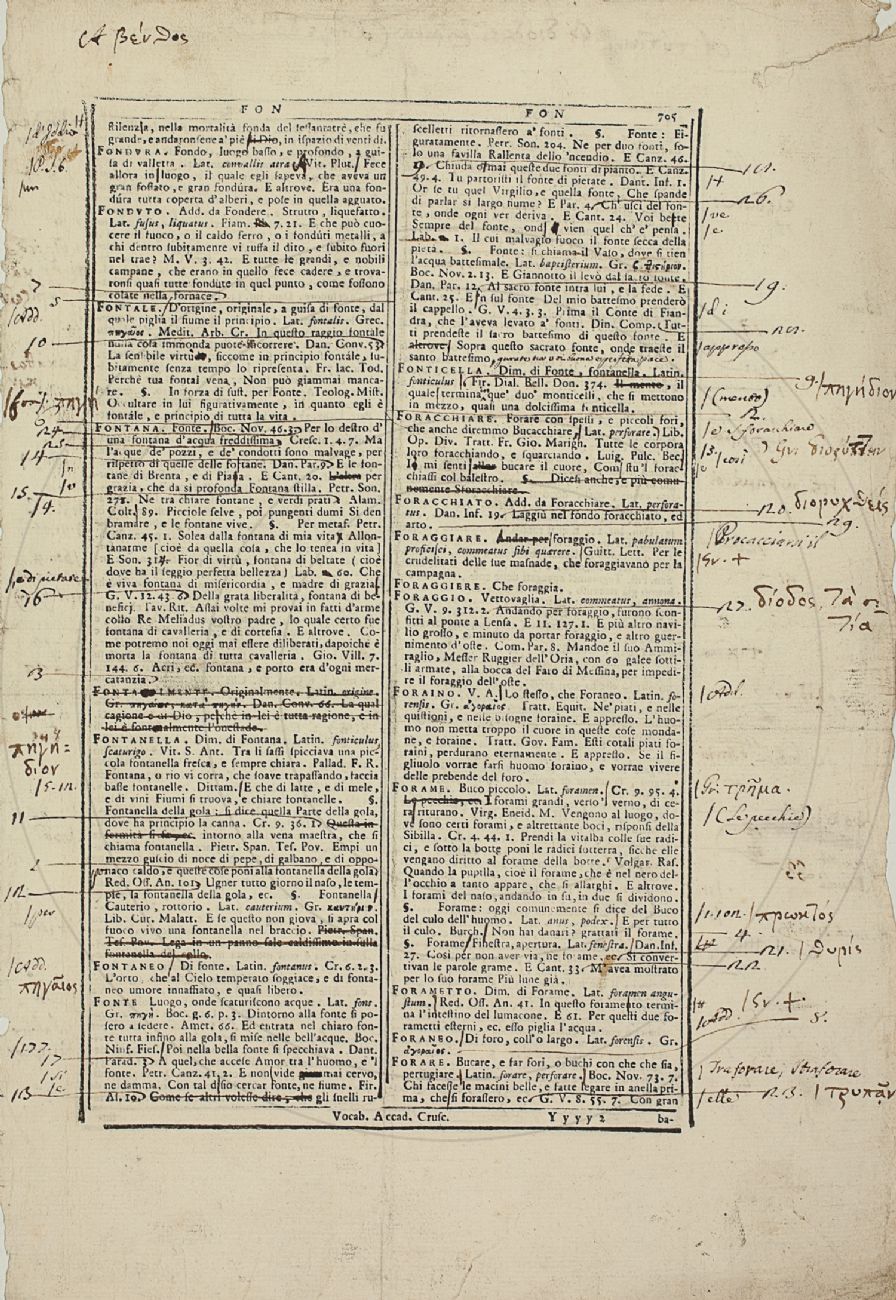 βένθος
FON
FON
705
stilenzia, nella mortalità fonda del sessantatrè, che fu
grande, e andaronsene a' piè di Dio, in ispazio di venti dì.
FONDURA. Fondo, luogo basso, e profondo, a gui-
sa di valletta. Lat. convallis Vit. Plut. Fece
allora in luogo, il quale egli sapeva, che aveva un
gran fossato, e gran fondúra. E altrove. Era una fon-
dúra tutta coperta d'alberi, e pose in quella agguato.
FONDUTO. Add. da Fondere. Strutto, liquefatto.
Lat. fusus, liquatus. Fiam. 7. 21. E che può cuo-
cere il fuoco, o il caldo ferro, o i fondúti metalli, a
chi dentro subitamente vi tuffa il dito, e subito fuori
nel trae? M. V. 3. 42. E tutte le grandi, e nobili
campane, che erano in quello fece cadere, e trova-
ronsi quasi tutte fondúte in quel punto, come fossono
colate nella fornace.
FONTALE. D'origine, originale, a guisa di fonte, dal
quale piglia il fiume il principio. Lat. fontalis. Grec.
πηγαῖος. Medit. Arb. Cr. In questo raggio fontale
nulla cosa immonda puote iscorrere. Dan. Conv. 53
La sensibile virtude, siccome in principio fontále, su-
bitamente senza tempo lo ripresenta. Fr. Iac. Tod.
Perchè tua fontal vena, Non può giammai manca-
re. §. In forza di sust. per Fonte. Teolog. Mist.
Occultare in lui figurativamente, in quanto egli è
fontále, e principio di tutta la vita.
FONTANA. Fonte. Boc. Nov. 46. 3. Per lo destro d'
una fontana d'acqua freddissima. Cresc. 1. 4. 7. Ma
l'acque de' pozzi, e de' condotti sono malvage, per
rispetto di quelle delle fontane. Dan. Par. 9. E le fon-
tane di Brenta, e di Piava. E Cant. 20. L'altra per
grazia, che da sì profonda Fontana stilla. Petr. Son.
278. Ne tra chiare fontane, e verdi prati. Alam.
Colt. 89. Picciole selve, poi pungenti dumi Si den
bramáre, e le fontane vive. §. Per metaf. Petr.
Canz. 45. 1. Solea dalla fontana di mia vita Allon-
tanarme [cioè da quella cosa, che lo tenea in vita]
E Son. 314. Fior di virtù, fontana di beltate (cioè
dove ha il seggio perfetta bellezza) Lab. 60. Che
è viva fontana di misericordia, e madre di grazia.
G. V. 12. 43. 6. Della grata liberalità, fontana di be-
neficj. Tav. Rit. Assai volte mi provai in fatti d'arme
collo Re Meliadus vostro padre, lo quale certo fue
fontana di cavalleria, e di cortesia. E altrove. Co-
me potremo noi oggi mai essere diliberati, dapoichè è
morta la fontana di tutta cavalleria. Gio. Vill. 7.
144. 6. Acri, ec. fontana, e porto era d'ogni mer-
catanzia.
FONTALMENTE. Originalmente. Latin. origine.
Dan. Conv. 66. La qual
cagione è di Dio, perchè in lei è tutta ragione, e in
lei è fontalmente l'onestade.
FONTANELLA. Dim. di Fontana. Latin. fonticulus,
scaturigo. Vit. S. Ant. Tra li sassi spicciava una pic-
cola fontanella fresca, e sempre chiara. Pallad. F. R.
Fontana, o rio vi corra, che soave trapassando, faccia
basse fontanelle. Dittam. E che di latte, e di mele,
e di vini Fiumi si truova, e chiare fontanelle. §.
Fontanella della gola: si dice quella Parte della gola,
dove ha principio la canna. Cr. 9. 36. 1. Questa in-
fermità si fa ec. intorno alla vena maestra, che si
chiama fontanella. Pietr. Span. Tes. Pov. Empi un
mezzo guscio di noce di pepe, di galbano, e di oppo-
ponaco caldo, e queste cose poni alla fontanella della gola.
Red. Oss. An. 101. Ugner tutto giorno il naso, le tem-
pie, la fontanella della gola, ec. §. Fontanella
Cauterio, rottorio. Lat. cauterium. Gr. καυτήριον.
Lib. Cur. Malatt. E se questo non giova, si apra col
fuoco vivo una fontanella nel braccio. Pietr. Span.
Tes. Pov. Lega in un panno sale caldissimo in sulla
fontanella del collo.
FONTANEO. Di fonte. Latin. fontanus. Cr. 6. 2. 3.
L'orto, che al Cielo temperato soggiace, e di fonta-
neo umore innaffiato, e quasi libero.
FONTE Luogo, onde scaturiscono acque. Lat. fons.
Gr. πηγή. Boc. g. 6. p. 3. Dintorno alla fonte si po-
sero a sedere. Amet. 66. Ed entrata nel chiaro fon-
te tutta infino alla gola, si mise nelle bell'acque. Boc.
Ninf. Fies. Poi nella bella fonte si specchiava. Dant.
Parad. 3. A quel, che accese Amor tra l'huomo, e 'l
fonte. Petr. Canz. 41. 2. E non vide mai cervo,
ne damma, Con tal disio cercar fonte, ne fiume. Fir.
As. 10. Come se altri volesse dire, che gli snelli ru-
scelletti ritornassero a' fonti. §. Fonte: Fi-
guratamente. Petr. Son. 204. Ne per duo fonti, so-
lo una favilla Rallenta dello 'ncendio. E Canz. 46.
Chiuda omai queste due fonti di pianto. E Canz.
49. 4. Tu partoristi il fonte di pietate. Dant. Inf. 1.
Or se tu quel Virgilio, e quella fonte, Che spande
di parlar sì largo fiume? E Par. 4. Ch' uscì del fon-
te, onde ogni ver deriva. E Cant. 24. Voi beete
Sempre del fonte, onde vien quel ch'e' pensa.
Lab. 1. Il cui malvagio fuoco il fonte secca della
pieta. §. Fonte: si chiama il Vaso, dove si tien
l'acqua battesimale. Lat. baptisterium. Gr.
Boc. Nov. 2. 13. E Giannotto il levò dal sacro fonte.
Dan. Par. 12. Al sacro fonte intra lui, e la fede. E
Cant. 25. E in sul fonte Del mio battesmo prenderò
il cappello. G. V. 4. 3. 3. Prima il Conte di Fian-
dra, che l'aveva levato a' fonti. Din. Comp. Tut-
ti prendeste il sacro battesimo di questo fonte. E
altrove. Sopra questo sacrato fonte, onde traeste il
santo battesimo,
FONTICELLA. Dim. di Fonte, fontanella. Latin.
fonticulus. Fir. Dial. Bell. Don. 374. Il mento, il
quale termina que' duo' monticelli, che si mettono
in mezzo, quasi una dolcissima fonticella.
FORACCHIARE. Forare con spessi, e piccoli fori,
che anche diremmo Bucacchiare. Lat. perforare. Lib.
Op. Div. Tratt. Fr. Gio. Marign. Tutte le corpora
loro foracchiando, e squarciando. Luig. Pulc. Bec.
Io mi senti bucare il cuore, Com s tu 'l forac-
chiassi col balestro. §. Dicesi anche, e più comu-
nemente Sforacchiare.
FORACCHIATO. Add. da Foracchiare. Lat. perfora-
tus. Dan. Inf. 19. Laggiù nel fondo foracchiato, ed
arto.
FORAGGIARE. Andar per foraggio. Lat. pabulatum
proficisci, commeatus sibi quærere. Guitt. Lett. Per le
crudelitati delle tue masnade, che foraggiavano per la
campagna.
FORAGGIERE. Che foraggia.
FORAGGIO. Vettovaglia. Lat. commeatus, annona.
G. V. 9. 312. 2. Andando per foraggio, furono scon-
fitti al ponte a Lensa. E 11. 127. 1. E più altro navi-
lio grosso, e minuto da portar foraggio, e altro guer-
nimento d'oste. Com. Par. 8. Mandoe il suo Ammi-
raglio, Messer Ruggier dell'Oria, con 60 galee sotti-
li armate, alla bocca del Faro di Messina, per impedi-
re il foraggio dell'oste.
FORAINO. V. A. Lo stesso, che Foraneo. Latin. fo-
rensis. Gr. ἀγοραῖος. Tratt. Equit. Ne' piati, e nelle
quistioni, e nelle bisogne foraine. E appresso. L'huo-
mo non metta troppo il cuore in queste cose monda-
ne, e foraine. Tratt. Gov. Fam. Esti cotali piati fo-
raini, perdurano eternamente. E appresso. Se il fi-
gliuolo vorrae farsi huomo foraino, e vorrae vivere
delle prebende del foro.
FORAME. Buco piccolo. Lat. foramen. Cr. 9. 95. 4.
Le pecchie, en I forami grandi, verso 'l verno, di ce-
ra riturano. Virg. Eneid. M. Vengono al luogo, do-
ve sono certi forami, e altrettante boci, risponsi della
Sibilla. Cr. 4. 44. 1. Prendi la vitalba colle sue radi-
ci, e sotto la botte poni le radici sotterra, sicche elle
vengano diritto al forame della botte. Volgar. Ras.
Quando la pupilla, cioè il forame, che è nel nero del-
l'occhio a tanto appare, che si allarghi. E altrove.
I forami del naso, andando in su, in due si dividono.
§. Forame: oggi comunemente si dice del Buco
del culo dell'huomo. Lat. anus, podex. E per tutto
il culo. Burch. Non hai danari? grattati il forame.
§. Forame. Finestra, apertura. Lat. fenestra. Dan. Inf.
27. Così per non aver via, ne forame, ec. Si conver-
tivan le parole grame. E Cant. 33. M'avea mostrato
per lo suo forame Più lune già.
FORAMETTO. Dim. di Forame. Lat. foramen angu-
stum. Red. Oss. An. 41. In questo forametto termi-
na l'intestino del lumacone. E 61. Per questi due fo-
rametti esterni, ec. esso piglia l'acqua.
FORANEO. Di foro, coll' o largo. Lat. forensis. Gr.
ἀγοραῖος.
FORARE. Bucare, e far fori, o buchi con che che sia,
pertugiare. Latin. forare, perforare. Boc. Nov. 73. 7.
Chi facesse le macini belle, e fatte legare in anella pri-
ma, che si forassero, ec. G. V. 8. 55. 7. Con gran
Vocab. Accad. Crusc.
Yyyy 2
ba-
7
5
10
πηγή
24
25
14
15.
76
13
πηγί=
διον
11
2
12
πηγαῖος
177.
17
113
26.
19.
(mento)
πηγίδιον
foracchiare
20.
διορυχθείς
29.
Procacciarsi il
27.
δίοδος,
Gr. τρῆμα.
(Le pecchie)
πρωκτός
4.
21.
θυρίς
22
8.
Traforare, straforare
23.
τρυπᾷν